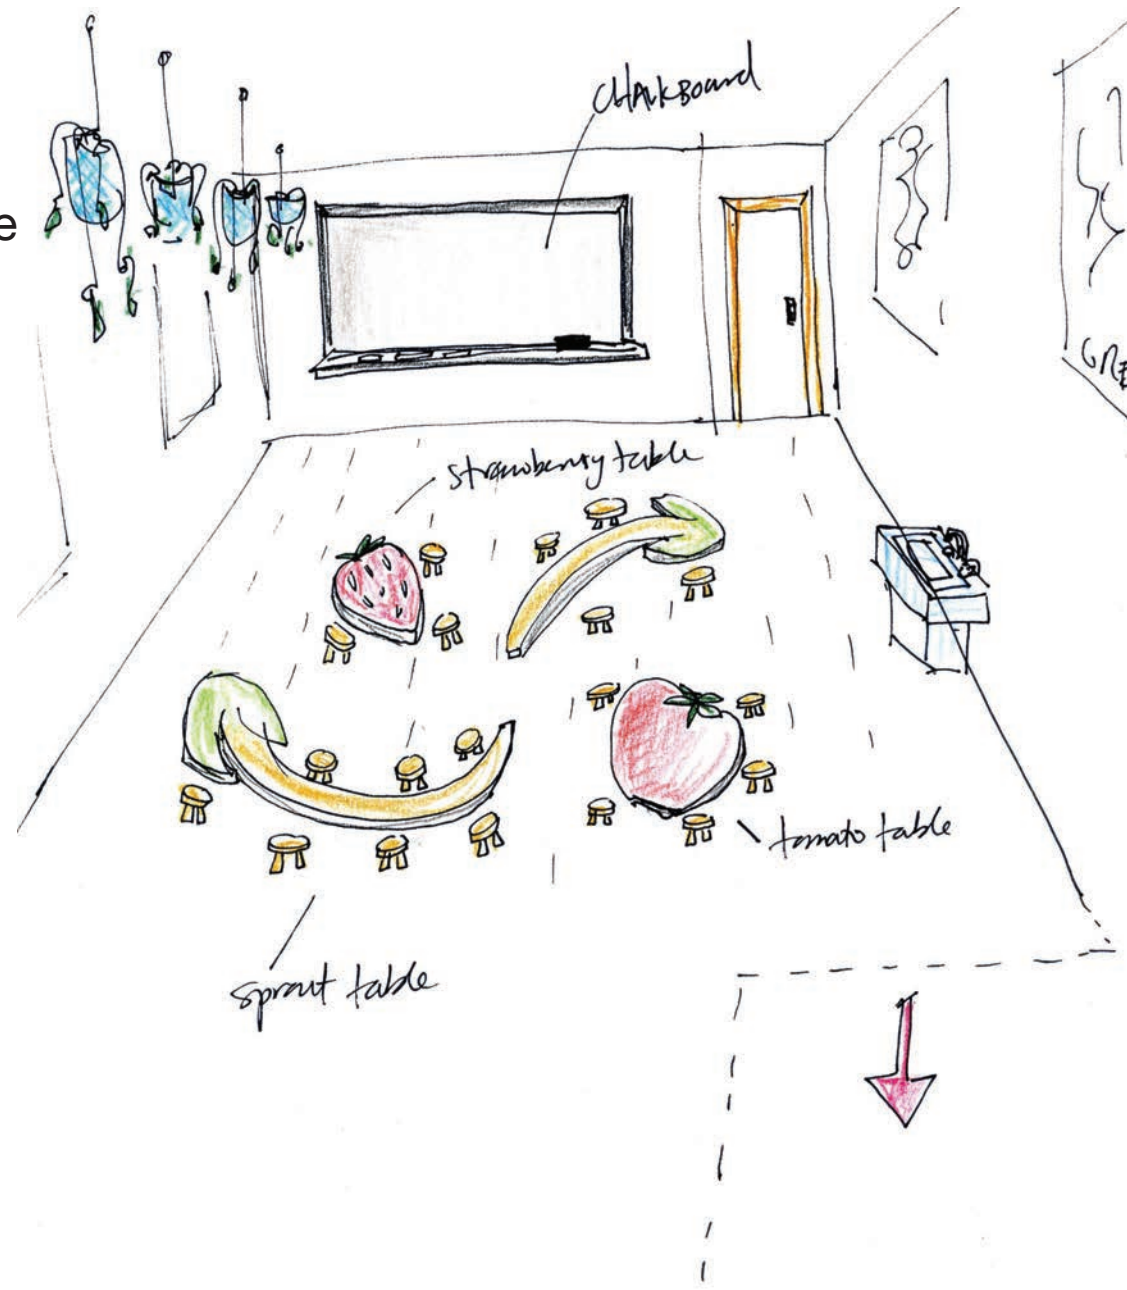 CHALKBoard
e
GRE
strawberry table
tomato table
sprout table